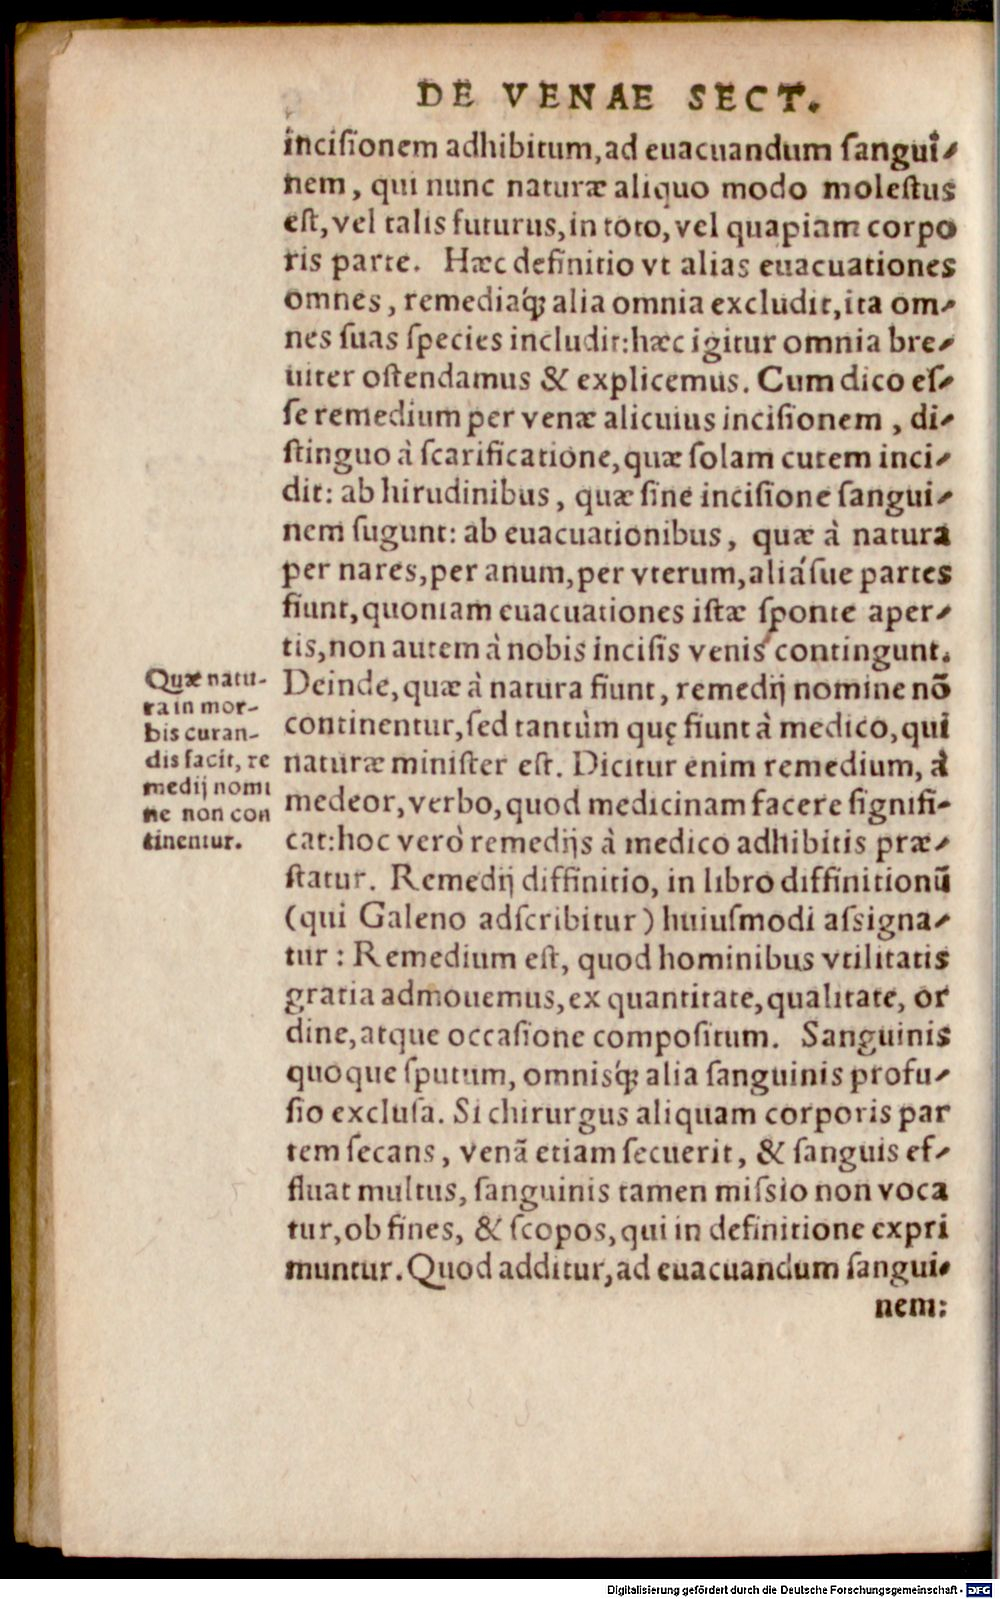 DE VENAE SECT.
inciſionem adhibitum, ad euacuandum ſangui-
nem, qui nunc naturæ aliquo modo moleſtus
eſt, vel talis futurus, in toto, vel quapiam corpo
ris parte. Hæc definitio vt alias euacuationes
omnes, remediaq́; alia omnia excludit, ita om-
nes ſuas ſpecies includit: hæc igitur omnia bre-
uiter oſtendamus & explicemus. Cum dico eſ-
ſe remedium per venæ alicuius inciſionem, di-
ſtinguo à ſcarificatione, quæ ſolam cutem inci-
dit: ab hirudinibus, quæ ſine inciſione ſangui-
nem ſugunt: ab euacuationibus, quæ à natura
per nares, per anum, per vterum, aliáſue partes
fiunt, quoniam euacuationes iſtæ ſponte aper-
tis, non autem à nobis inciſis venis contingunt.
Deinde, quæ à natura fiunt, remedij nomine nō
continentur, ſed tantùm quę fiunt à medico, qui
naturæ miniſter eſt. Dicitur enim remedium, à
medeor, verbo, quod medicinam facere ſignifi-
cat: hoc verò remedijs à medico adhibitis præ-
ſtatur. Remedij diffinitio, in libro diffinitionū
(qui Galeno adſcribitur) huiuſmodi aſsigna-
tur: Remedium eſt, quod hominibus vtilitatis
gratia admouemus, ex quantitate, qualitate, or
dine, atque occaſione compoſitum. Sanguinis
quoque ſputum, omnisq́; alia ſanguinis profu-
ſio excluſa. Si chirurgus aliquam corporis par
tem ſecans, venā etiam ſecuerit, & ſanguis ef-
fluat multus, ſanguinis tamen miſsio non voca
tur, ob fines, & ſcopos, qui in definitione expri
muntur. Quod additur, ad euacuandum ſangui-
nem:
Quæ natu-
ra in mor-
bis curan-
dis facit, re
medij nomi
ne non con
tinentur.
Digitalisierung gefördert durch die Deutsche Forschungsgemeinschaft - DFG